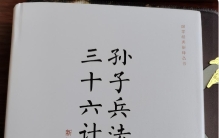 孙子兵法
三十六计